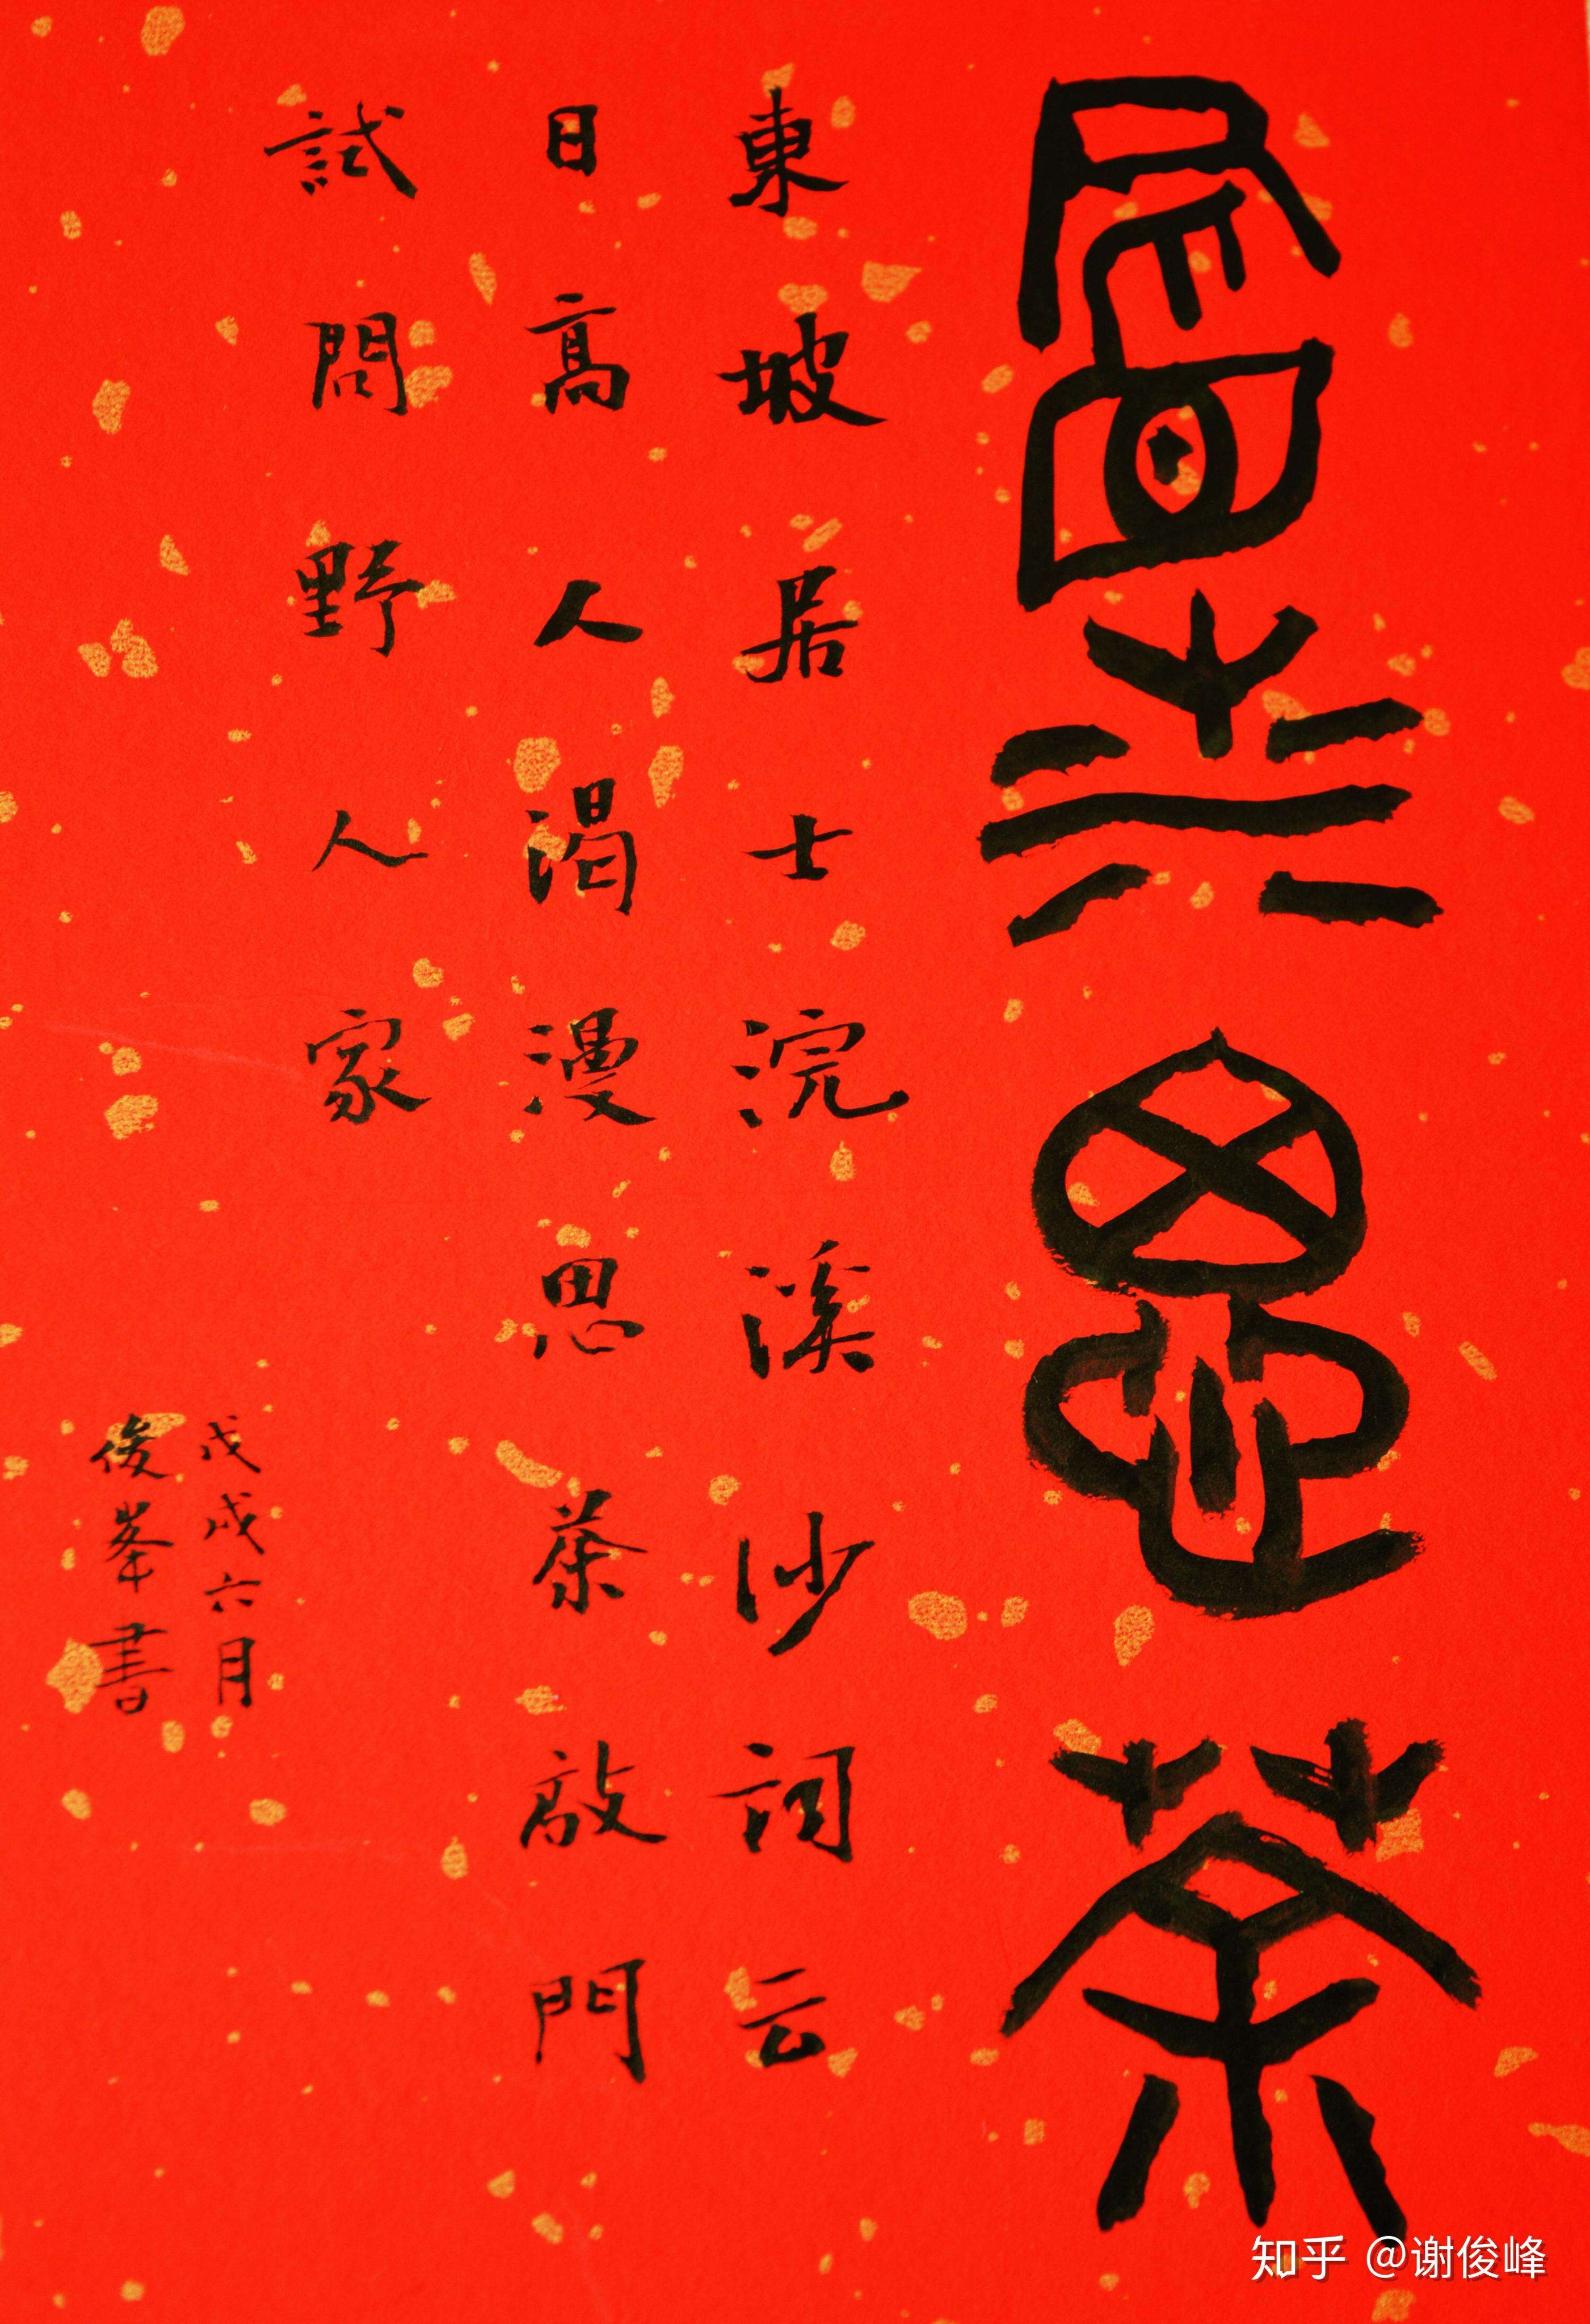 漫思茶
東坡居士浣溪沙詞云
日高人渴漫思茶敲門
試問野人家
戊戌六月
俊峯書
知乎 @谢俊峰